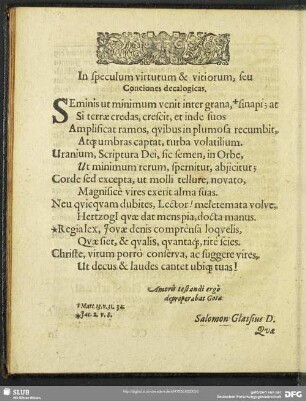 In speculum virtutum & vitiorum, seu
Conciones decalogicas.
SEminis ut minimum venit inter grana, †sinapi; at
Si terræ credas, crescit, et inde suos
Amplificat ramos, qvibus in plumosa recumbit,
Atq; umbras captat, turba volatilium.
Uranium, Scriptura Dei, sic semen, in Orbe,
Ut minimum rerum, spernitur, abjicitur;
Corde sed excepta, ut molli tellure, novato,
Magnificè vires exerit alma suas.
Neu qvicqvam dubites, Lector! meletemata volve,
Hertzogî qvæ dat mens pia, docta manus.
*Regia lex, Jovæ denis comprênsa loqvelis,
Qvæ siet, & qvalis, qvantaq;, ritè scies.
Christe, virum porrò conserva, ac suggere vires,
Ut decus & laudes cantet ubiq; tuas!
Amoris testandi ergò
deproperabat Gotæ
† Matt. 13. v. 31. 32.
* Jac. 2. v. 8.
Salomon Glassius D.
Qvæ
SLUB
Wir führen Wissen.
gefördert von der
Deutschen Forschungsgemeinschaft
DFG